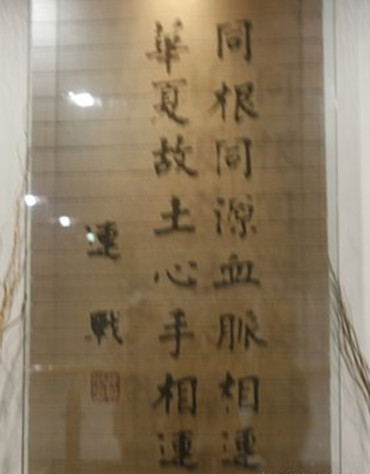 同根同源血脈相連
華夏故土心手相連
連戰